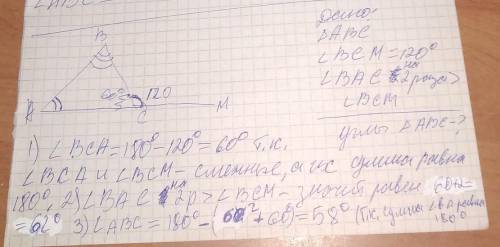 Дано:
ΔABC
∠BCM=120°
∠BAC на 2 раза>
∠BCM
углы ΔABC-?
B
A
C
M
60°
120
1) ∠BCA=180°-120°=60° т.к.
∠BCA и ∠BCM - смежные, а их сумма равна
180°. 2) ∠BAC на 2р> ∠BCM - значит равен 60+2=
=62° 3) ∠ABC=180°-(62+60)°=58° (т.к. сумма ∠ Δ равна
180°